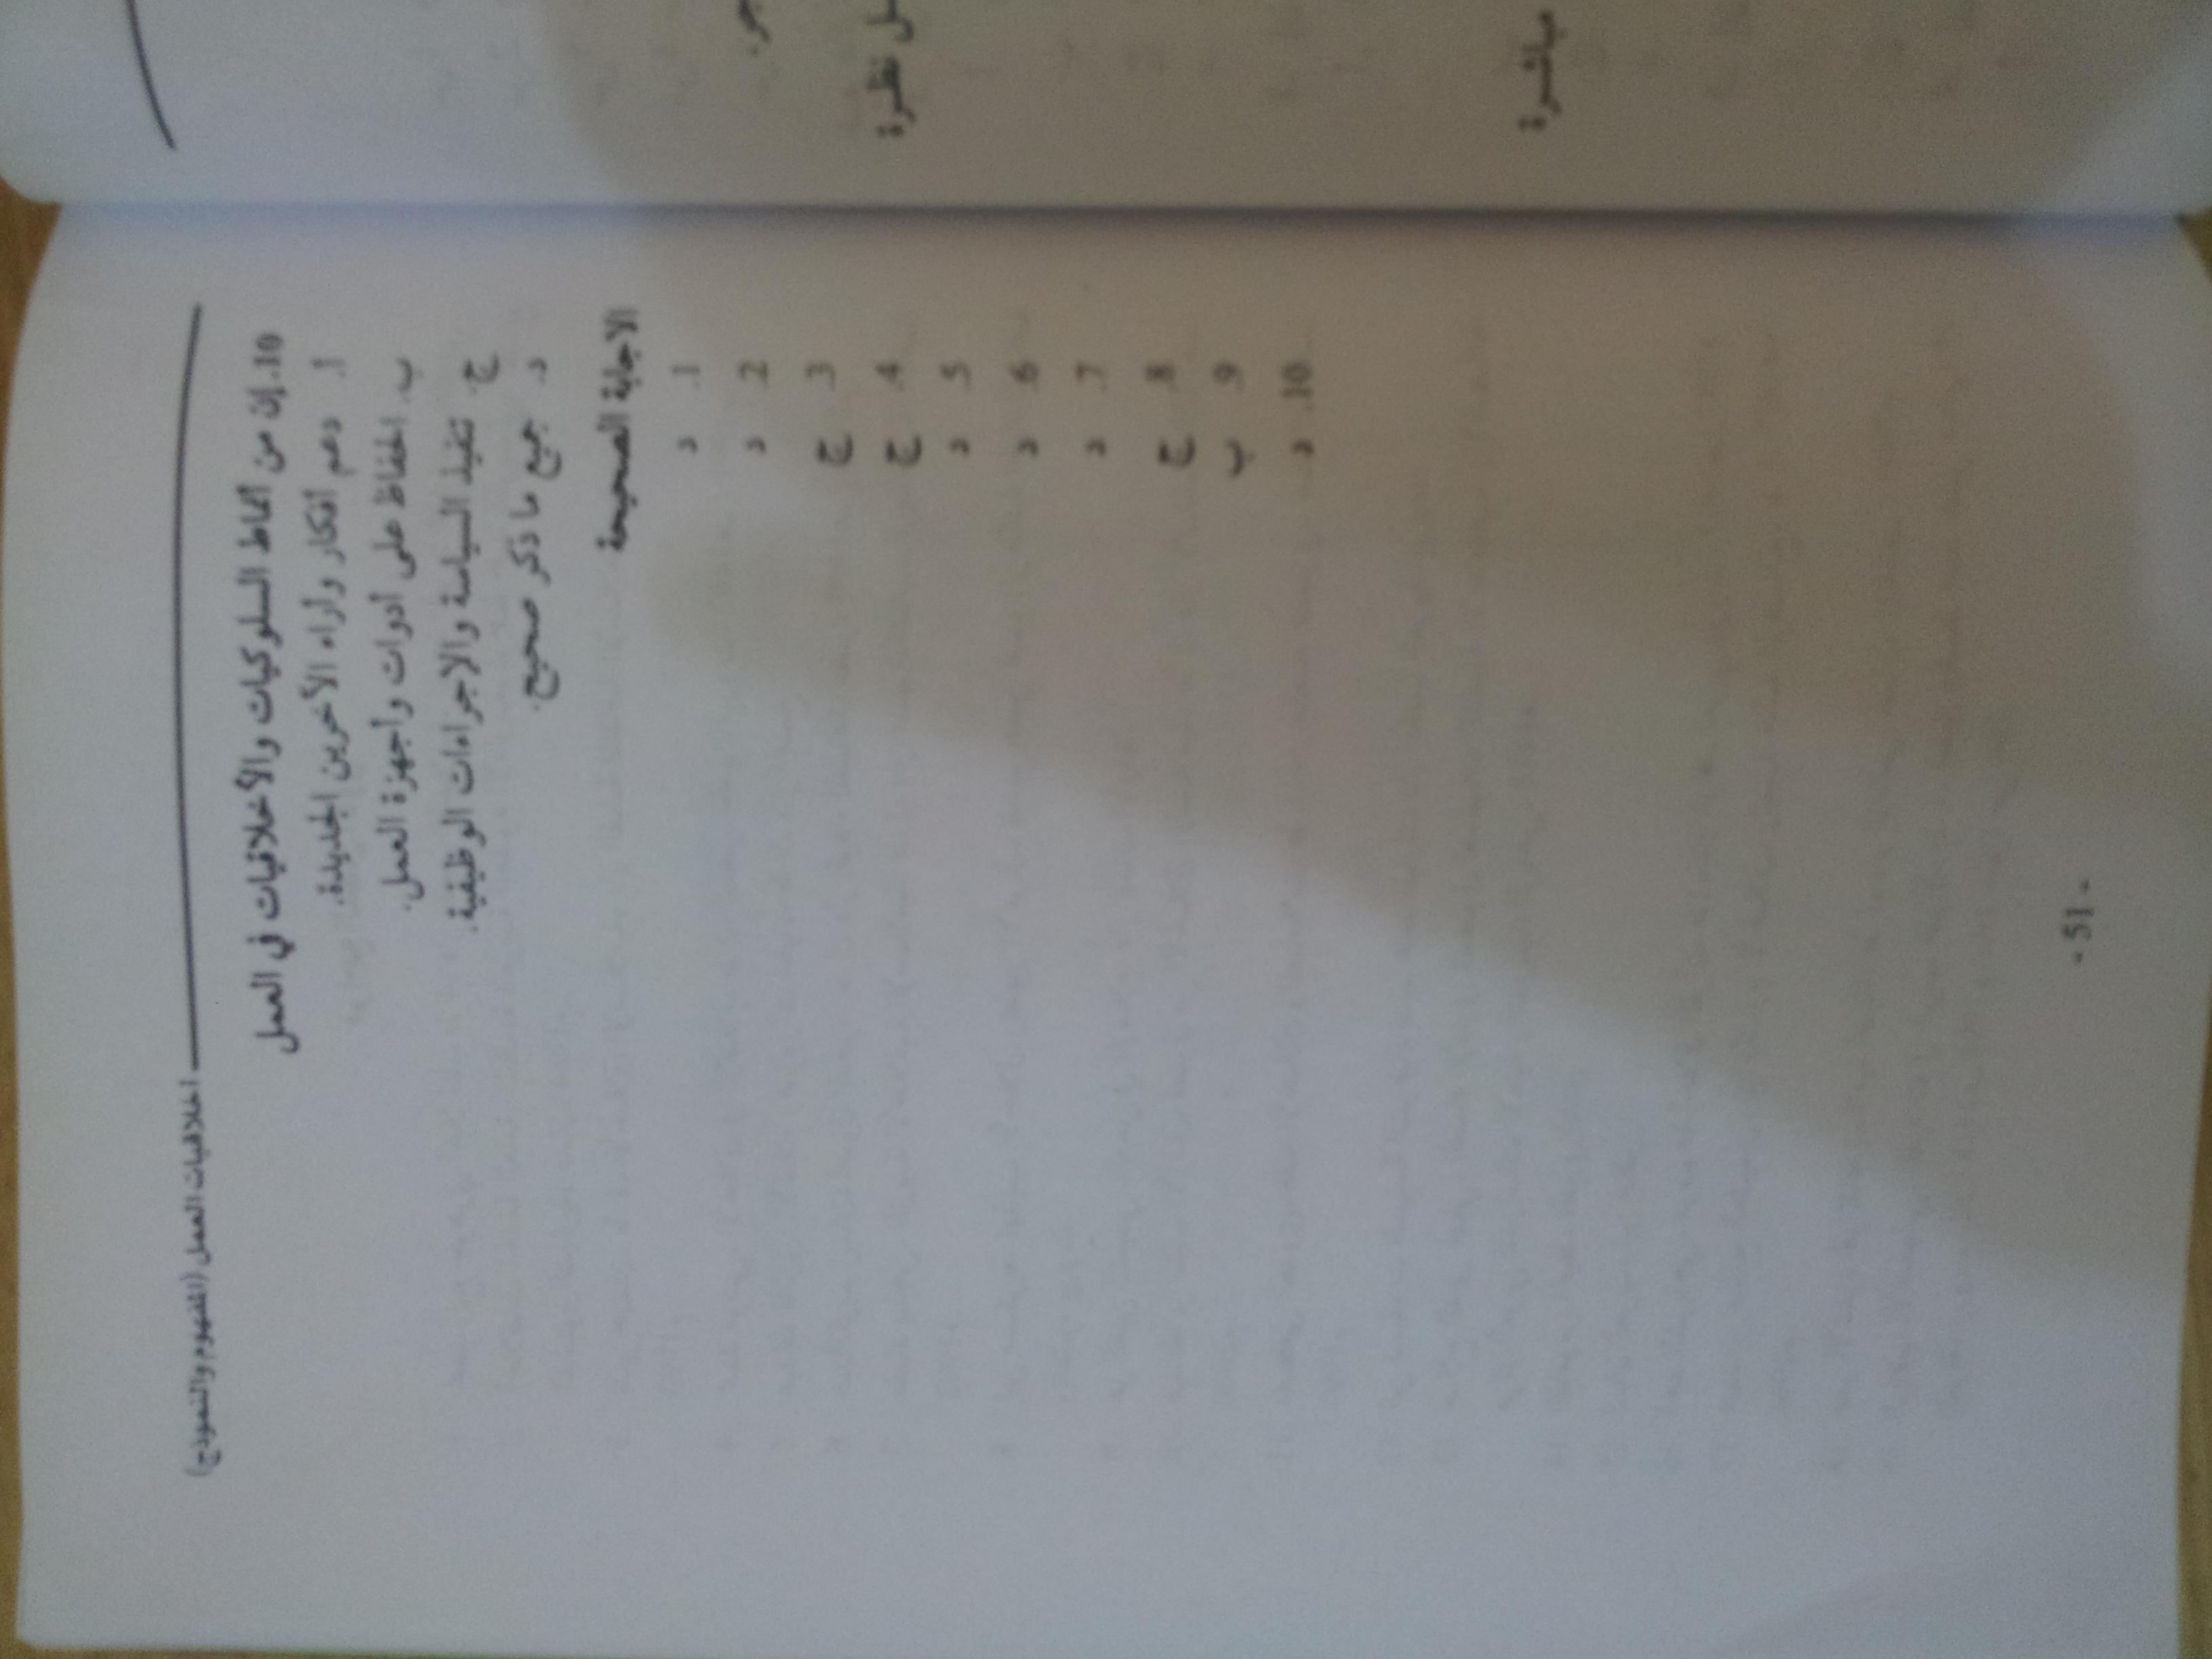 اخلاقيات العمل (المفهوم والنموذج)
10. إن من أنماط السلوكيات والأخلاقيات في العمل
أ. دعم أفكار وأراء الأخرين الجديدة.
ب. الحفاظ على أدوات وأجهزة العمل.
ج. تنفيذ السياسة والاجراءات الوظيفية.
د. جميع ما ذكر صحيح.
الاجابة الصحيحة
1. د
2. د
3. ج
4. ج
5. د
6. د
7. د
8. ج
9. ب
10. د
- 51 -
نظرة
مباشرة